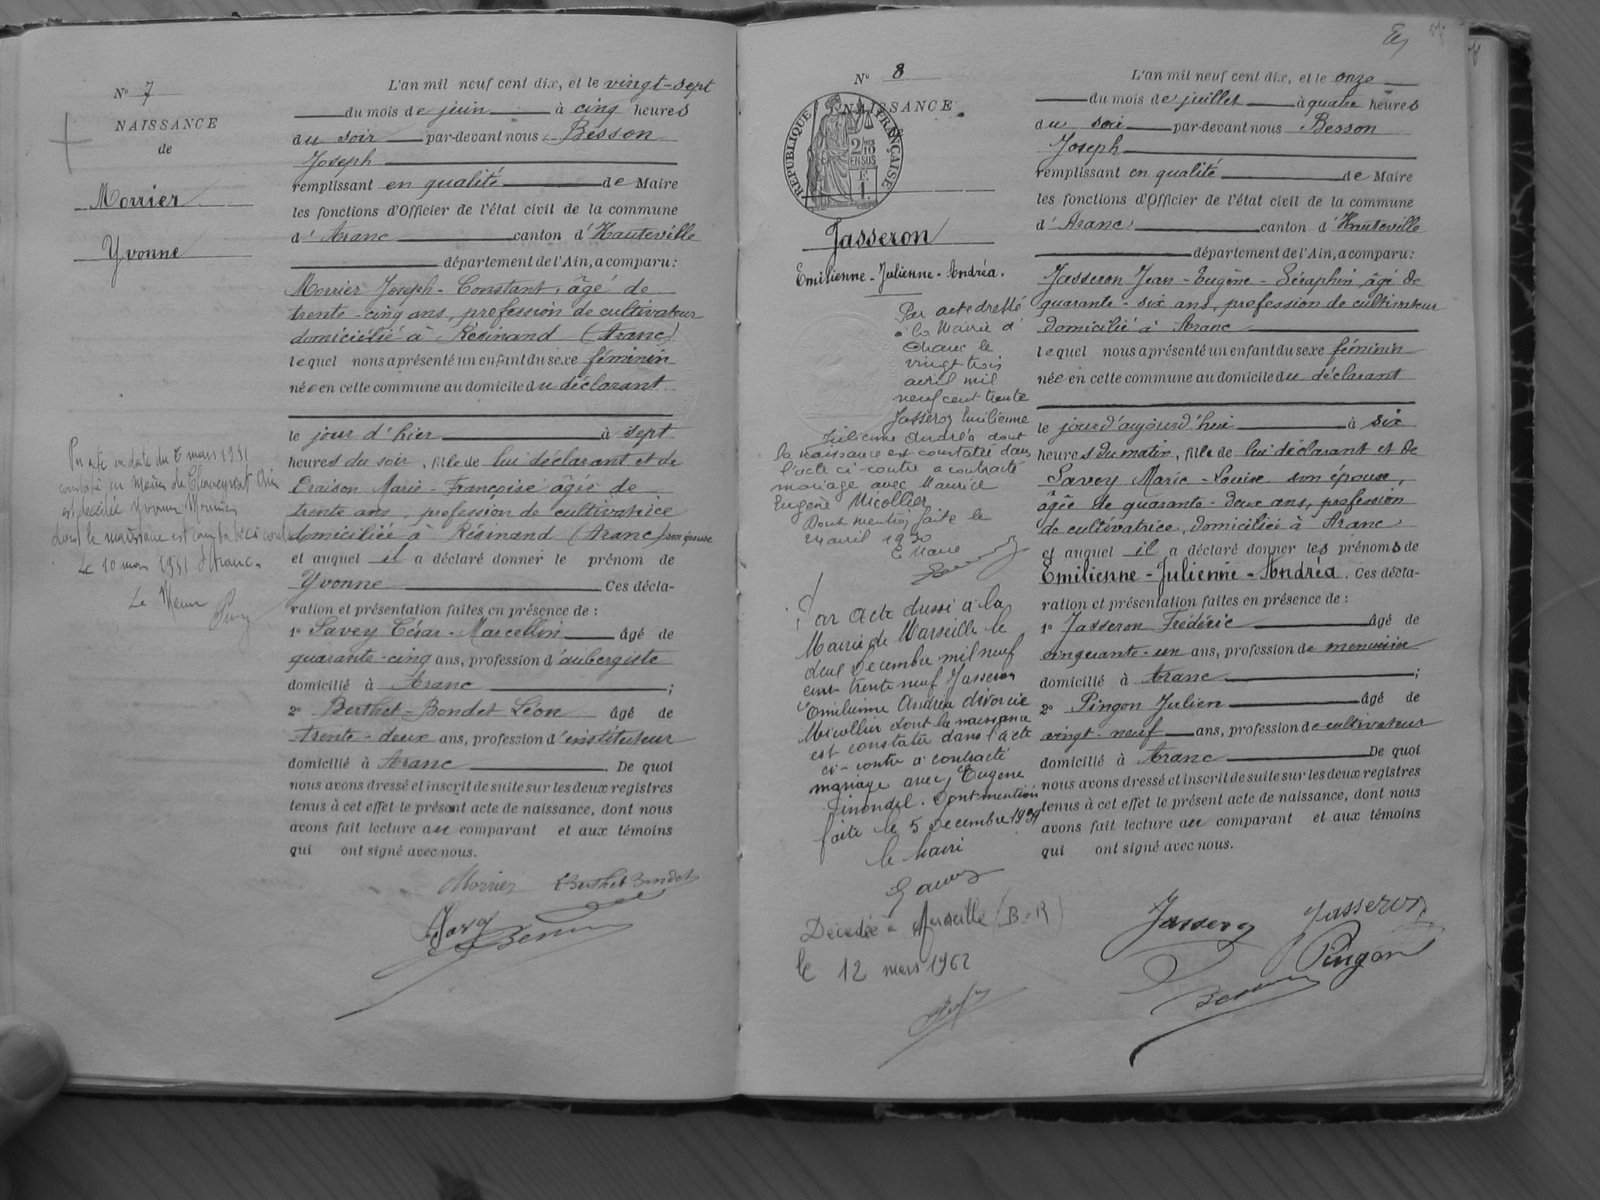 N° 7
NAISSANCE
de
Morrier
Yvonne
L'an mil neuf cent dix, et le vingt-sept
du mois de juin à cinq heures
du soir par-devant nous Besson
Joseph
remplissant en qualité de Maire
les fonctions d'Officier de l'état civil de la commune
d' Aranc canton d'Hauteville
département de l'Ain, a comparu:
Morrier Joseph-Constant, âgé de
trente-cinq ans, profession de cultivateur
domicilié à Résinand (Aranc)
lequel nous a présenté un enfant du sexe féminin
née en cette commune au domicile du déclarant
le jour d'hier à sept
heures du soir, fille de lui déclarant et de
Craison Marie-Françoise âgée de
trente ans, profession de cultivatrice
domiciliée à Résinand (Aranc) son épouse
et auquel il a déclaré donner le prénom de
Yvonne Ces décla-
ration et présentation faites en présence de :
1° Savey César-Marcellin âgé de
quarante-cinq ans, profession d'aubergiste
domicilié à Aranc ;
2° Berthet-Bondet Léon âgé de
trente-deux ans, profession d'instituteur
domicilié à Aranc . De quoi
nous avons dressé et inscrit de suite sur les deux registres
tenus à cet effet le présent acte de naissance, dont nous
avons fait lecture au comparant et aux témoins
qui ont signé avec nous.
Morrier Berthet Bondet
Savey
Besson
Par acte en date du 8 mars 1931
est décédée Yvonne Morrier
dont la naissance est constatée ci contre
Le 10 mars 1931 Aranc.
Le Maire
N° 8
NAISSANCE
RÉPUBLIQUE FRANÇAISE
2/10 EN SUS
F. 1
Jasseron
Emilienne-Julienne-Andréa.
Par acte dressé
à la Mairie d'
Oranc le
vingt trois
avril mil
neuf cent trente
Jasseron Emilienne
Julienne Andréa dont
la naissance est constatée dans
l'acte ci-contre a contracté
mariage avec Maurice
Eugène Nicollier
Dont mention faite le
24 avril 1930
Le Maire
Par acte dressé à la
Mairie de Marseille le
deux Décembre mil neuf
cent trente neuf Jasseron
Emilienne Andréa divorcée
Nicollier dont la naissance
est constatée dans l'acte
ci-contre a contracté
mariage avec Eugène
Dont mention
faite le 5 Décembre 1939
le Maire
Décédée à Marseille (B-R)
le 12 mars 1962
L'an mil neuf cent dix, et le onze
du mois de juillet à quatre heures
du soir par-devant nous Besson
Joseph
remplissant en qualité de Maire
les fonctions d'Officier de l'état civil de la commune
d' Aranc canton d'Hauteville
département de l'Ain, a comparu:
Jasseron Jean-Eugène-Séraphin, âgé de
quarante-six ans, profession de cultivateur
domicilié à Aranc
lequel nous a présenté un enfant du sexe féminin
née en cette commune au domicile du déclarant
le jour d'aujourd'hui à six
heures du matin, fille de lui déclarant et de
Savey Marie-Louise son épouse,
âgée de quarante-deux ans, profession
de cultivatrice, domiciliée à Aranc
et auquel il a déclaré donner les prénoms de
Emilienne-Julienne-Andréa. Ces décla-
ration et présentation faites en présence de :
1° Jasseron Frédéric âgé de
cinquante-un ans, profession de menuisier
domicilié à Aranc ;
2° Pingon Julien âgé de
vingt-neuf ans, profession de cultivateur
domicilié à Aranc De quoi
nous avons dressé et inscrit de suite sur les deux registres
tenus à cet effet le présent acte de naissance, dont nous
avons fait lecture au comparant et aux témoins
qui ont signé avec nous.
Jasseron Jasseron
Pingon
Besson